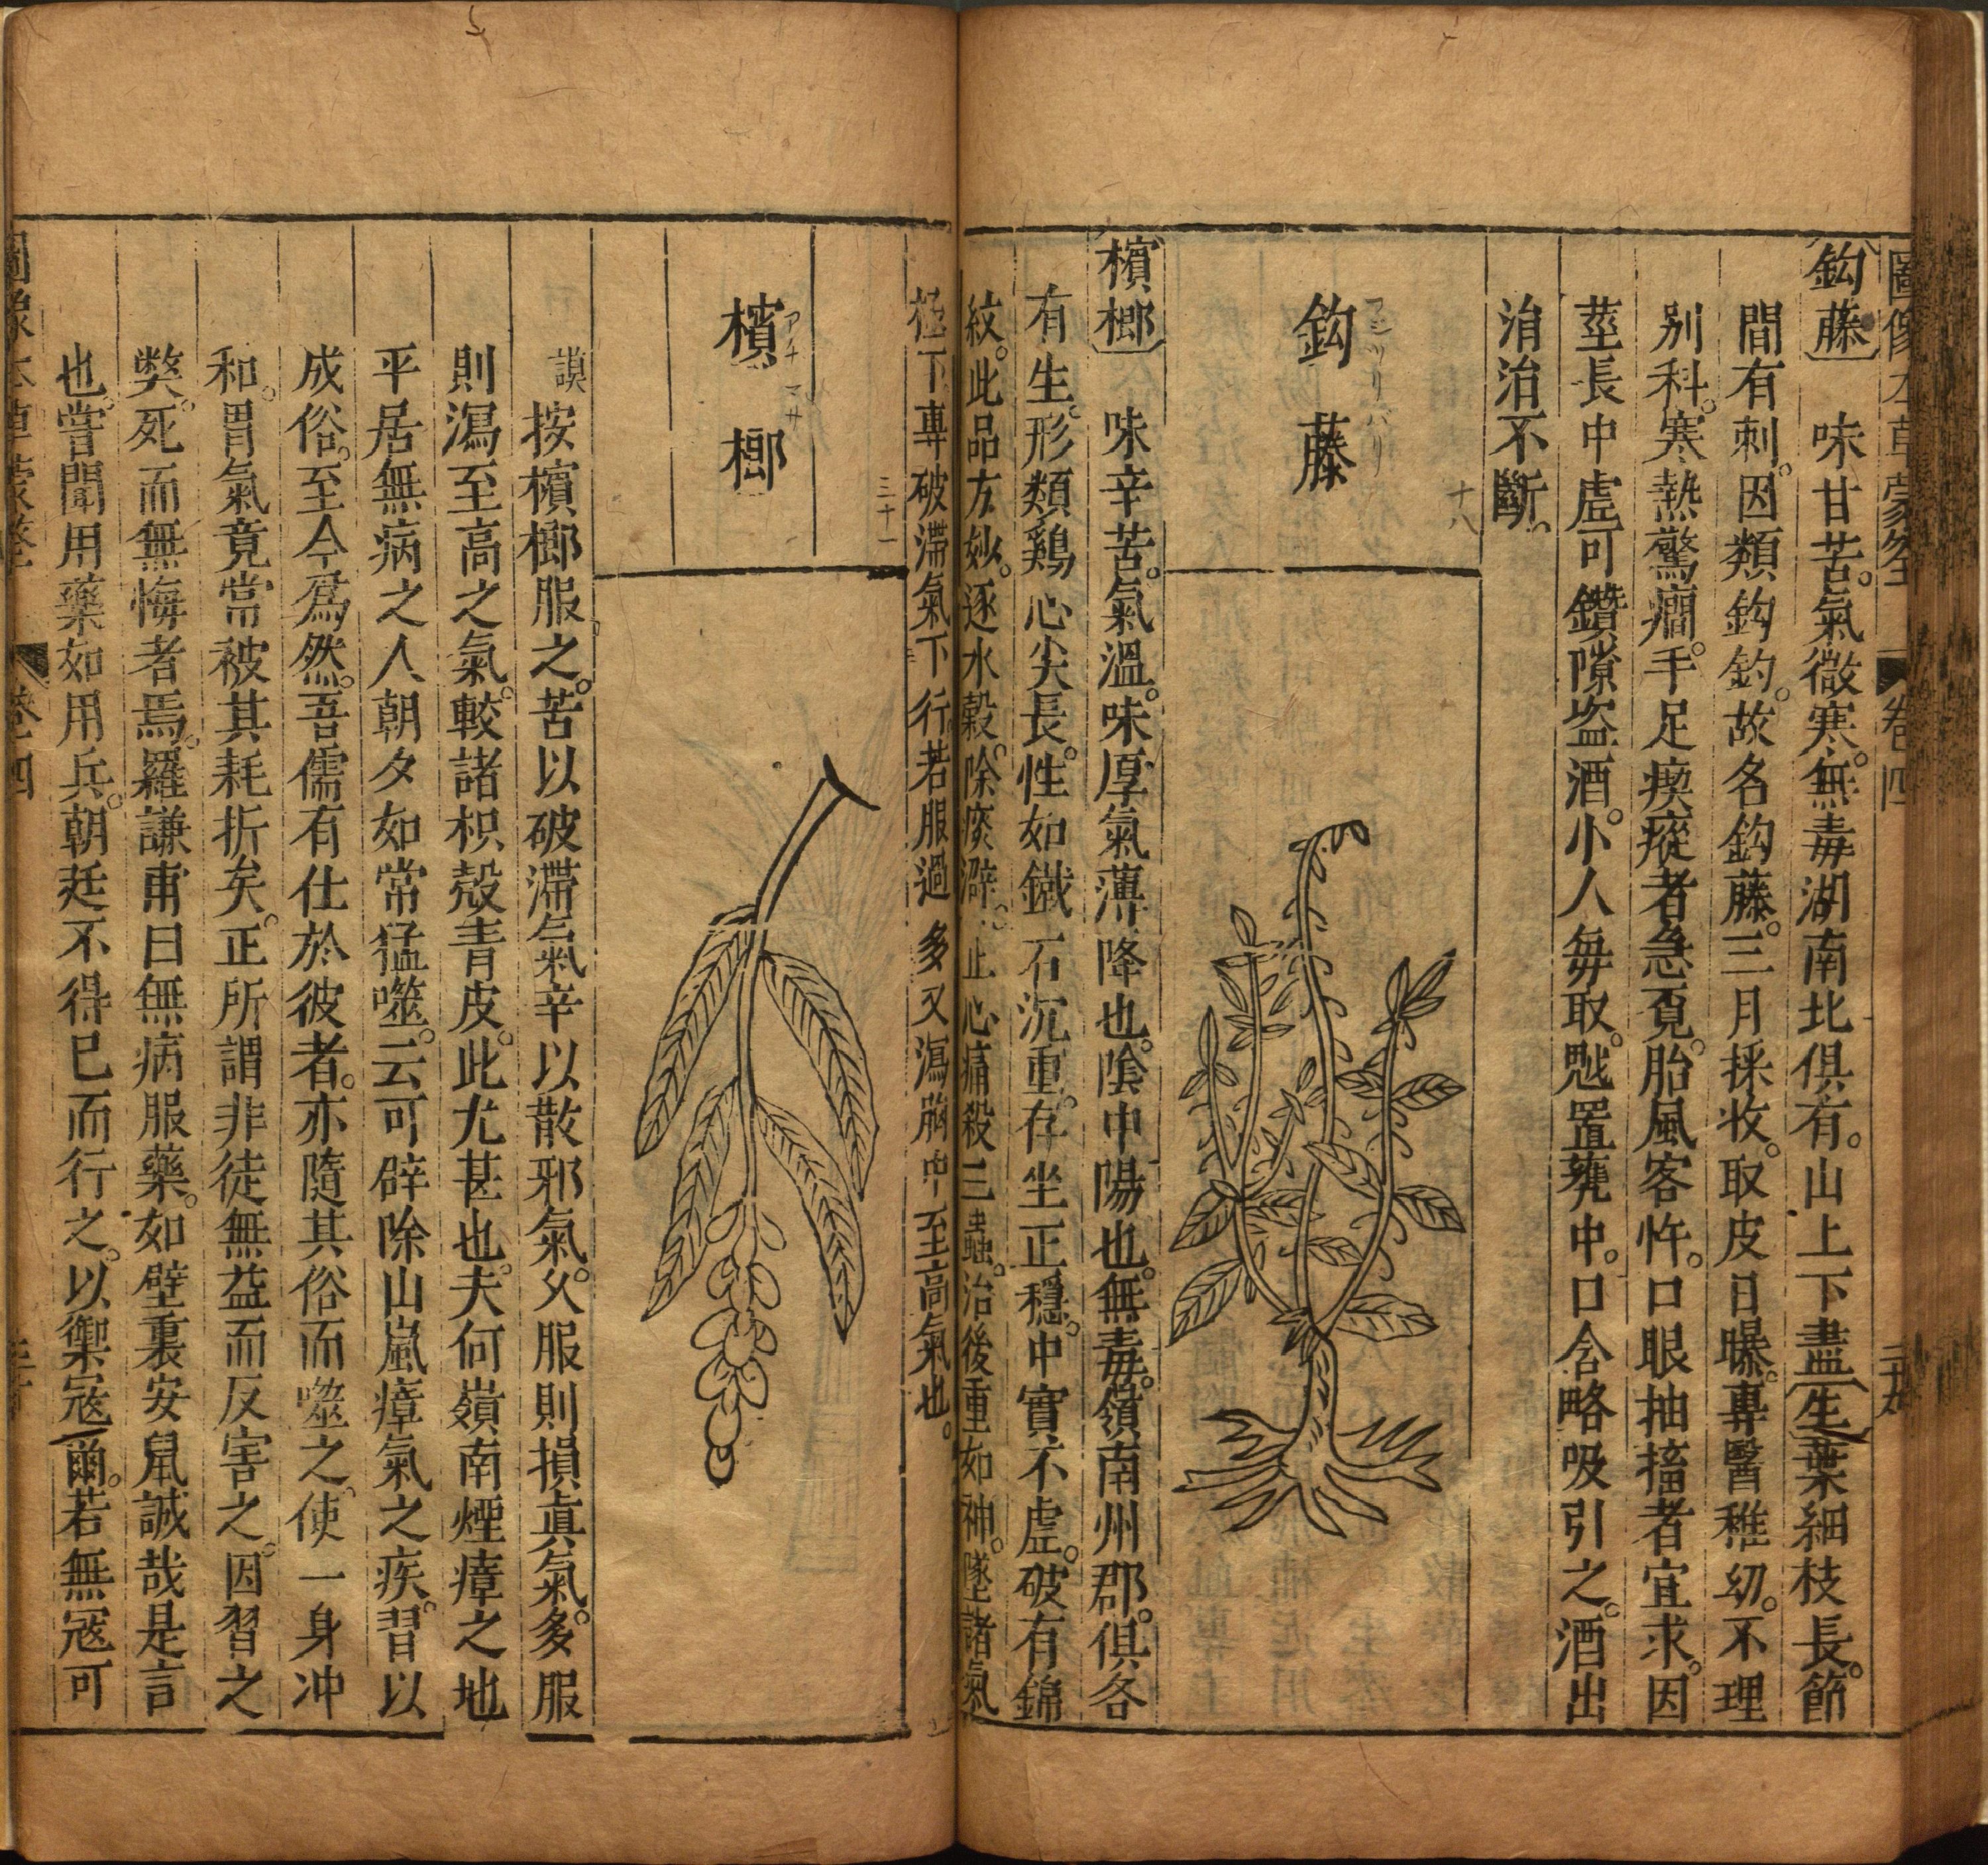 圖像本草蒙筌 卷四
鈎藤 味甘苦。氣微寒。無毒湖南北俱有。山上下盡生葉細枝長。節
間有刺。因類鈎釣。故名鈎藤。三月採收。取皮日曝。專醫稚幼。不理
別科。寒熱驚癇。手足瘈瘲者急覔。胎風客忤。口眼抽搐者宜求。因
莖長中虛可鑽隙盜酒。小人每取。置甕中。口含略吸引之。酒出
涓涓不斷。
十八
フシツリバリ
鈎藤
檳榔 味辛苦。氣溫。味厚氣薄降也。陰中陽也。無毒。嶺南州郡。俱各
有生。形類鷄心尖長。性如鐵石沉重。存坐正穩。中實不虛。破有錦
紋。此品方妙。逐水穀。除痰澼。止心痛殺三蟲。治後重如神。墜諸氣
極下專破滯氣下行若服過多又瀉胸中至高氣也。
三十一
檳榔
謨按檳榔服之。苦以破滯氣辛以散邪氣。久服則損真氣。多服
則瀉至高之氣。較諸枳殼青皮。此尤甚也。夫何嶺南煙瘴之地
平居無病之人朝夕如常猛噬。云可辟除山嵐瘴氣之疾。習以
成俗。至今為然。吾儒有仕於彼者。亦隨其俗而噬之。使一身冲
和。胃氣竟常被其耗折矣。正所謂非徒無益而反害之。因習之
獘。死而無悔者焉。羅謙甫曰無病服藥。如壁裏安鼠誠哉是言
也。嘗聞用藥如用兵。朝廷不得已而行之。以禦寇爾。若無寇可
圖像本草蒙筌 卷四